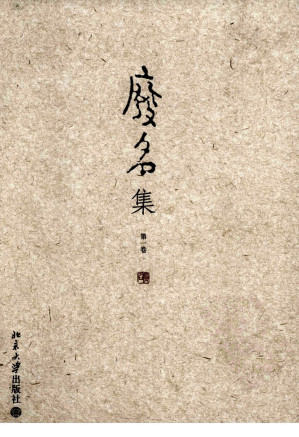 廢名集
第一卷
北京大学出版社